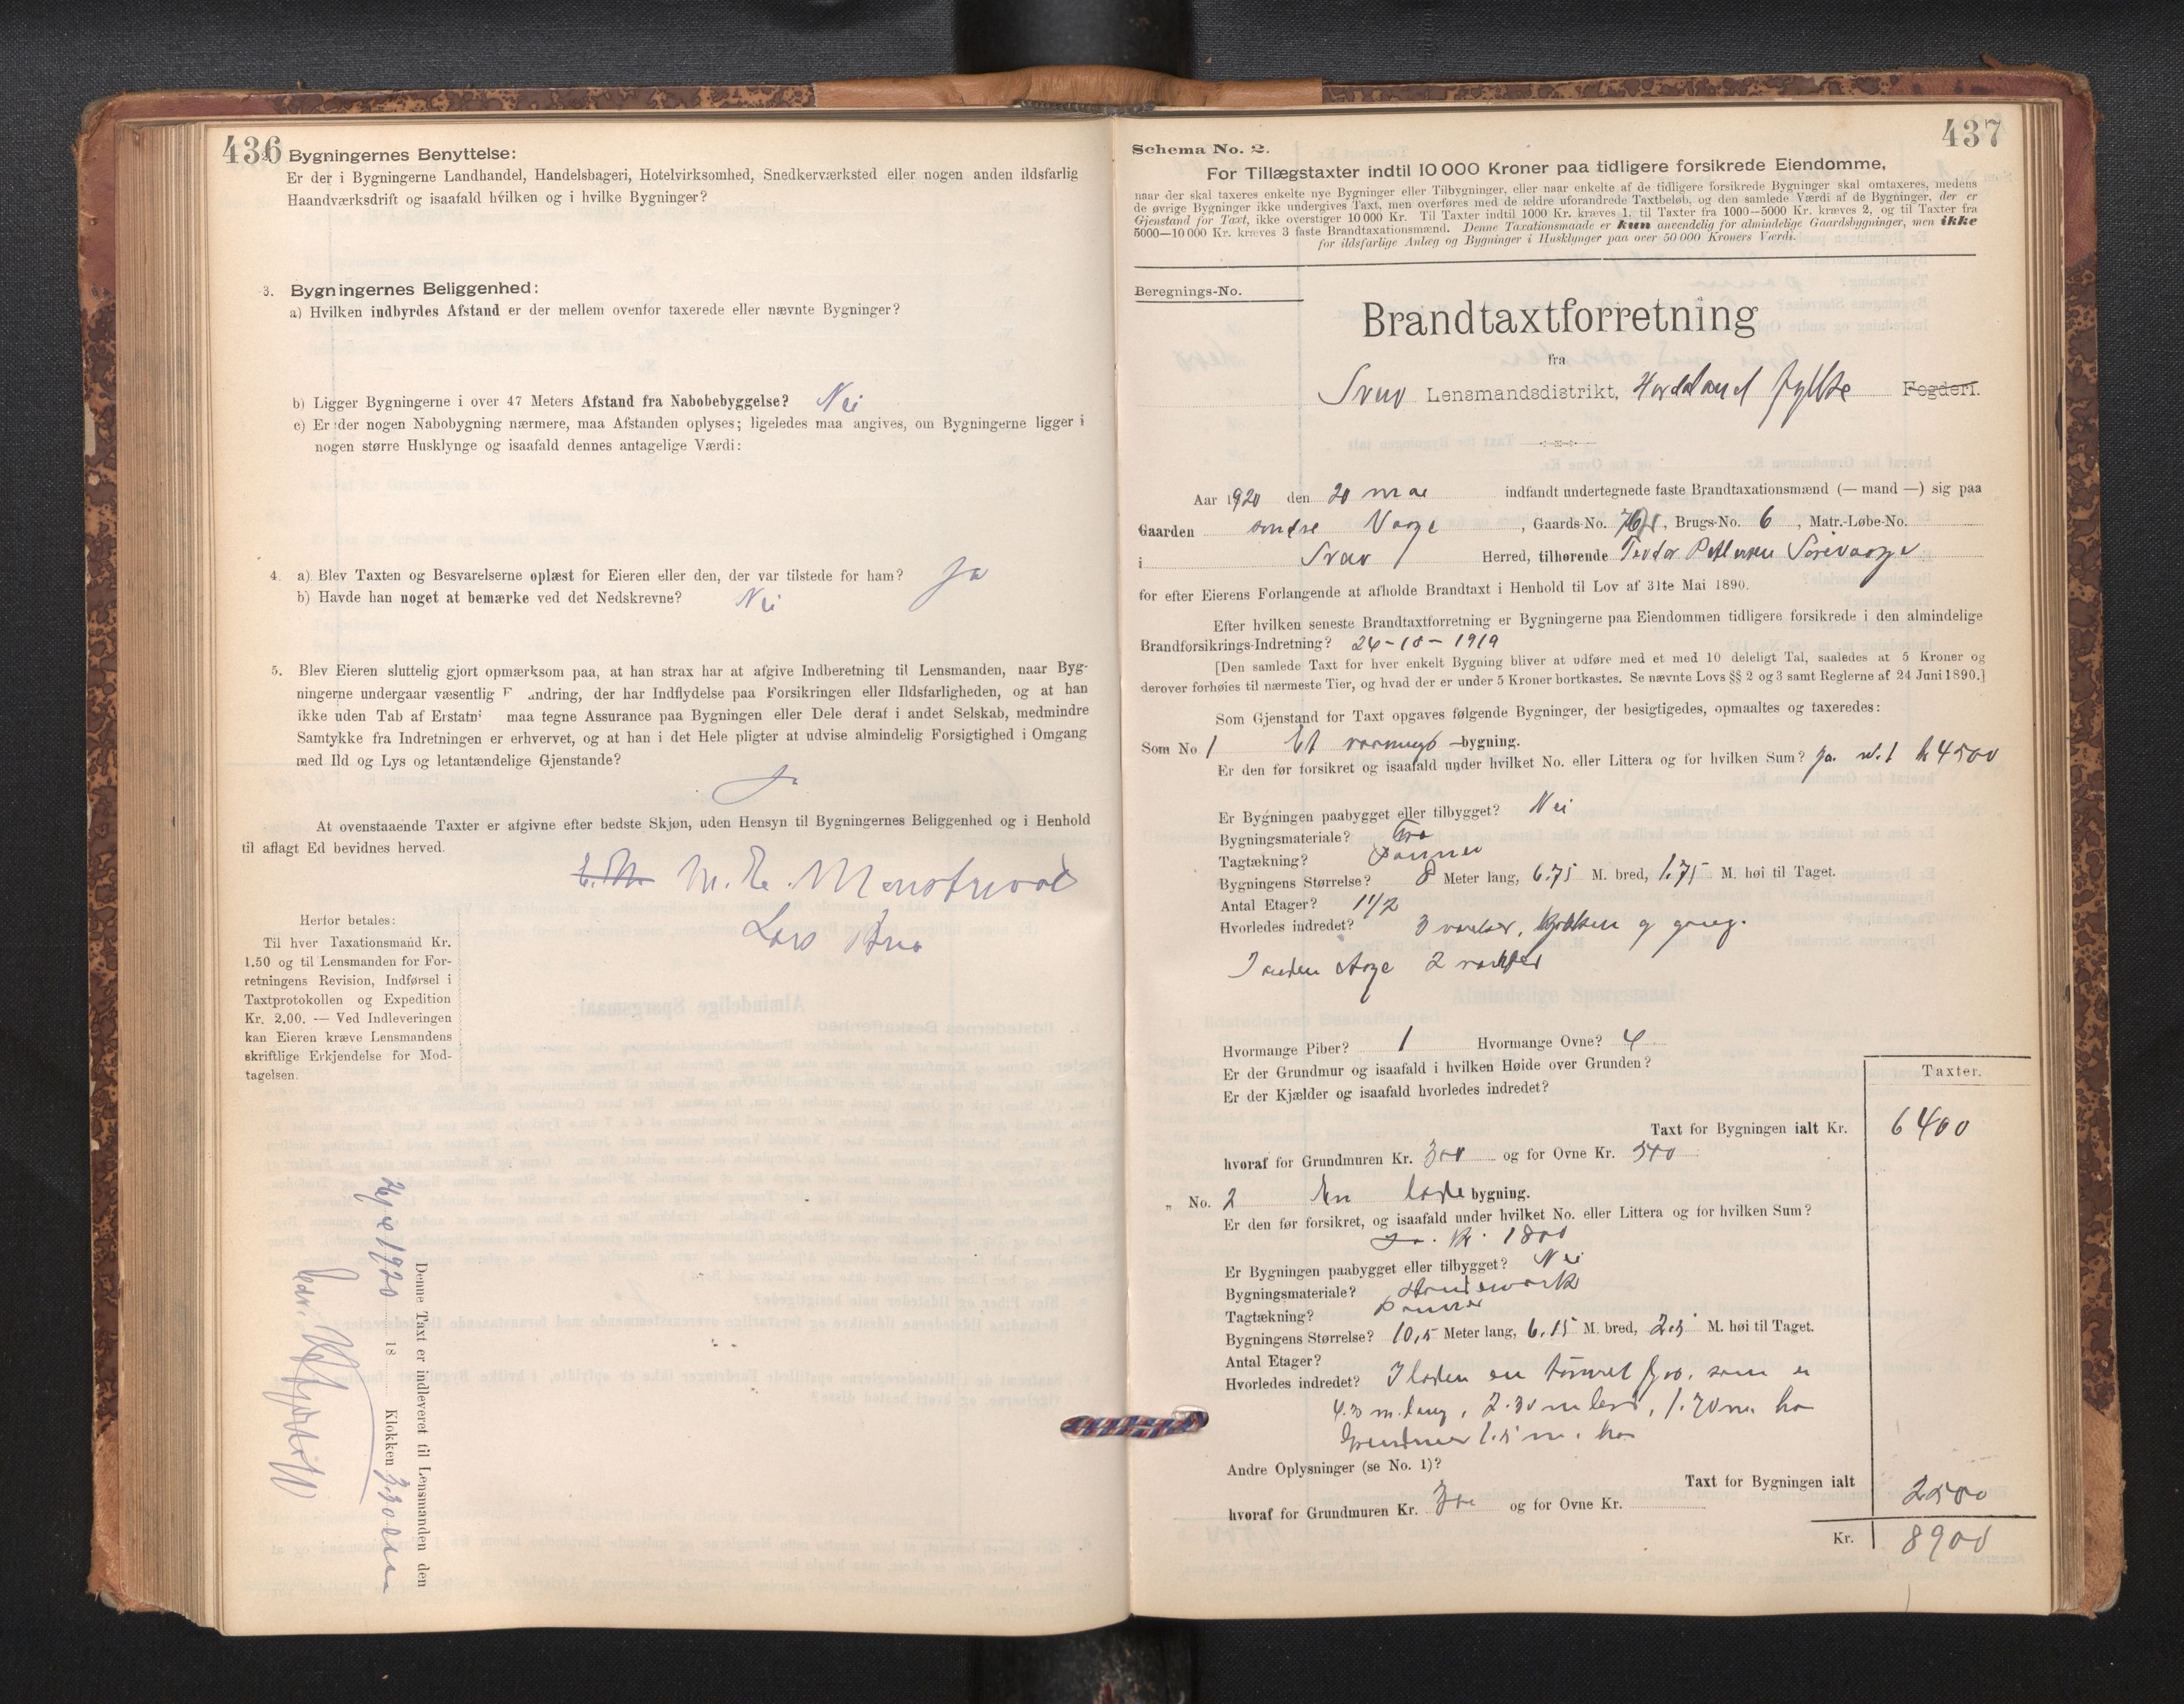 436
2. Bygningernes Benyttelse:
Er der i Bygningerne Landhandel, Handelsbageri, Hotelvirksomhed, Snedkerværksted eller nogen anden ildsfarlig
Haandværksdrift og isaafald hvilken og i hvilke Bygninger?
3. Bygningernes Beliggenhed:
a) Hvilken indbyrdes Afstand er der mellem ovenfor taxerede eller nævnte Bygninger?
b) Ligger Bygningerne i over 47 Meters Afstand fra Nabobebyggelse? Nei
c) Er der nogen Nabobygning nærmere, maa Afstanden oplyses; ligeledes maa angives, om Bygningerne ligger i
nogen større Husklynge og isaafald dennes antagelige Værdi:
4. a) Blev Taxten og Besvarelserne oplæst for Eieren eller den, der var tilstede for ham? Ja
b) Havde han noget at bemærke ved det Nedskrevne? Nei
5. Blev Eieren sluttelig gjort opmærksom paa, at han strax har at afgive Indberetning til Lensmanden, naar Byg-
ningerne undergaar væsentlig F andring, der har Indflydelse paa Forsikringen eller Ildsfarligheden, og at han
ikke uden Tab af Erstatn maa tegne Assurance paa Bygningen eller Dele deraf i andet Selskab, medmindre
Samtykke fra Indretningen er erhvervet, og at han i det Hele pligter at udvise almindelig Forsigtighed i Omgang
med Ild og Lys og letantændelige Gjenstande?
Ja
At ovenstaaende Taxter er afgivne efter bedste Skjøn, uden Hensyn til Bygningernes Beliggenhed og i Henhold
til aflagt Ed bevidnes herved.
M. E. Monstrevold
Lars Brua
Herfor betales:
Til hver Taxationsmand Kr.
1.50 og til Lensmanden for For-
retningens Revision, Indførsel i
Taxtprotokollen og Expedition
Kr. 2.00. — Ved Indleveringen
kan Eieren kræve Lensmandens
skriftlige Erkjendelse for Mod-
tagelsen.
Denne Taxt er indleveret til Lensmanden den
1920 18 Klokken 3.30
437
Schema No. 2.
For Tillægstaxter indtil 10 000 Kroner paa tidligere forsikrede Eiendomme,
naar der skal taxeres enkelte nye Bygninger eller Tilbygninger, eller naar enkelte af de tidligere forsikrede Bygninger skal omtaxeres, medens
de øvrige Bygninger ikke undergives Taxt, men overføres med de ældre uforandrede Taxtbeløb, og den samlede Værdi af de Bygninger, der er
Gjenstand for Taxt, ikke overstiger 10 000 Kr. Til Taxter indtil 1000 Kr. kræves 1, til Taxter fra 1000—5000 Kr. kræves 2, og til Taxter fra
5000—10 000 Kr. kræves 3 faste Brandtaxationsmænd. Denne Taxationsmaade er kun anvendelig for almindelige Gaardsbygninger, men ikke
for ildsfarlige Anlæg og Bygninger i Husklynger paa over 50 000 Kroners Værdi.
Beregnings-No.
Brandtaxtforretning
fra
Sveio Lensmandsdistrikt, Hordaland fylke Fogderi.
Aar 1920 den 20 mai indfandt undertegnede faste Brandtaxationsmænd (— mand —) sig paa
Gaarden søndre Vaage, Gaards-No. , Brugs-No. 6, Matr.-Løbe-No.
i Sveio Herred, tilhørende Teodor Pettersen Sørevaage
for efter Eierens Forlangende at afholde Brandtaxt i Henhold til Lov af 31te Mai 1890.
Efter hvilken seneste Brandtaxtforretning er Bygningerne paa Eiendommen tidligere forsikrede i den almindelige
Brandforsikrings-Indretning? 24-10-1919
[Den samlede Taxt for hver enkelt Bygning bliver at udføre med et med 10 deleligt Tal, saaledes at 5 Kroner og
derover forhøies til nærmeste Tier, og hvad der er under 5 Kroner bortkastes. Se nævnte Lovs §§ 2 og 3 samt Reglerne af 24 Juni 1890.]
Som Gjenstand for Taxt opgaves følgende Bygninger, der besigtigedes, opmaaltes og taxeredes:
Som No 1 Et vaanings-bygning.
Er den før forsikret og isaafald under hvilket No. eller Littera og for hvilken Sum? Ja. no. 1 kr 4500
Er Bygningen paabygget eller tilbygget? Nei
Bygningsmateriale? Træ
Tagtækning? Panner
Bygningens Størrelse? 8 Meter lang, 6.75 M. bred, 1.75 M. høi til Taget.
Antal Etager? 1 1/2
Hvorledes indredet? 3 værelser, kjøkken og gang.
I anden etage 2 værelser
Hvormange Piber? 1 Hvormange Ovne? 4
Er der Grundmur og isaafald i hvilken Høide over Grunden?
Er der Kjælder og isaafald hvorledes indredet?
Taxter.
Taxt for Bygningen ialt Kr. 6400
hvoraf for Grundmuren Kr. 300 og for Ovne Kr. 500
„ No. 2 En lade bygning.
Er den før forsikret, og isaafald under hvilket No. eller Littera og for hvilken Sum?
Ja. kr. 1800
Er Bygningen paabygget eller tilbygget? Nei
Bygningsmateriale? Standerværk
Tagtækning? Panner
Bygningens Størrelse? 10,5 Meter lang, 6.15 M. bred, 2.5 M. høi til Taget.
Antal Etager?
Hvorledes indredet? I laden en tømret fjøs, som er
4.30 m. lang, 2.30 m bred, 1.70 m. høi
Grundmur 1.5 m. høi
Andre Oplysninger (se No. 1)?
Taxt for Bygningen ialt 2500
hvoraf for Grundmuren Kr. 300 og for Ovne Kr.
Kr. 8900